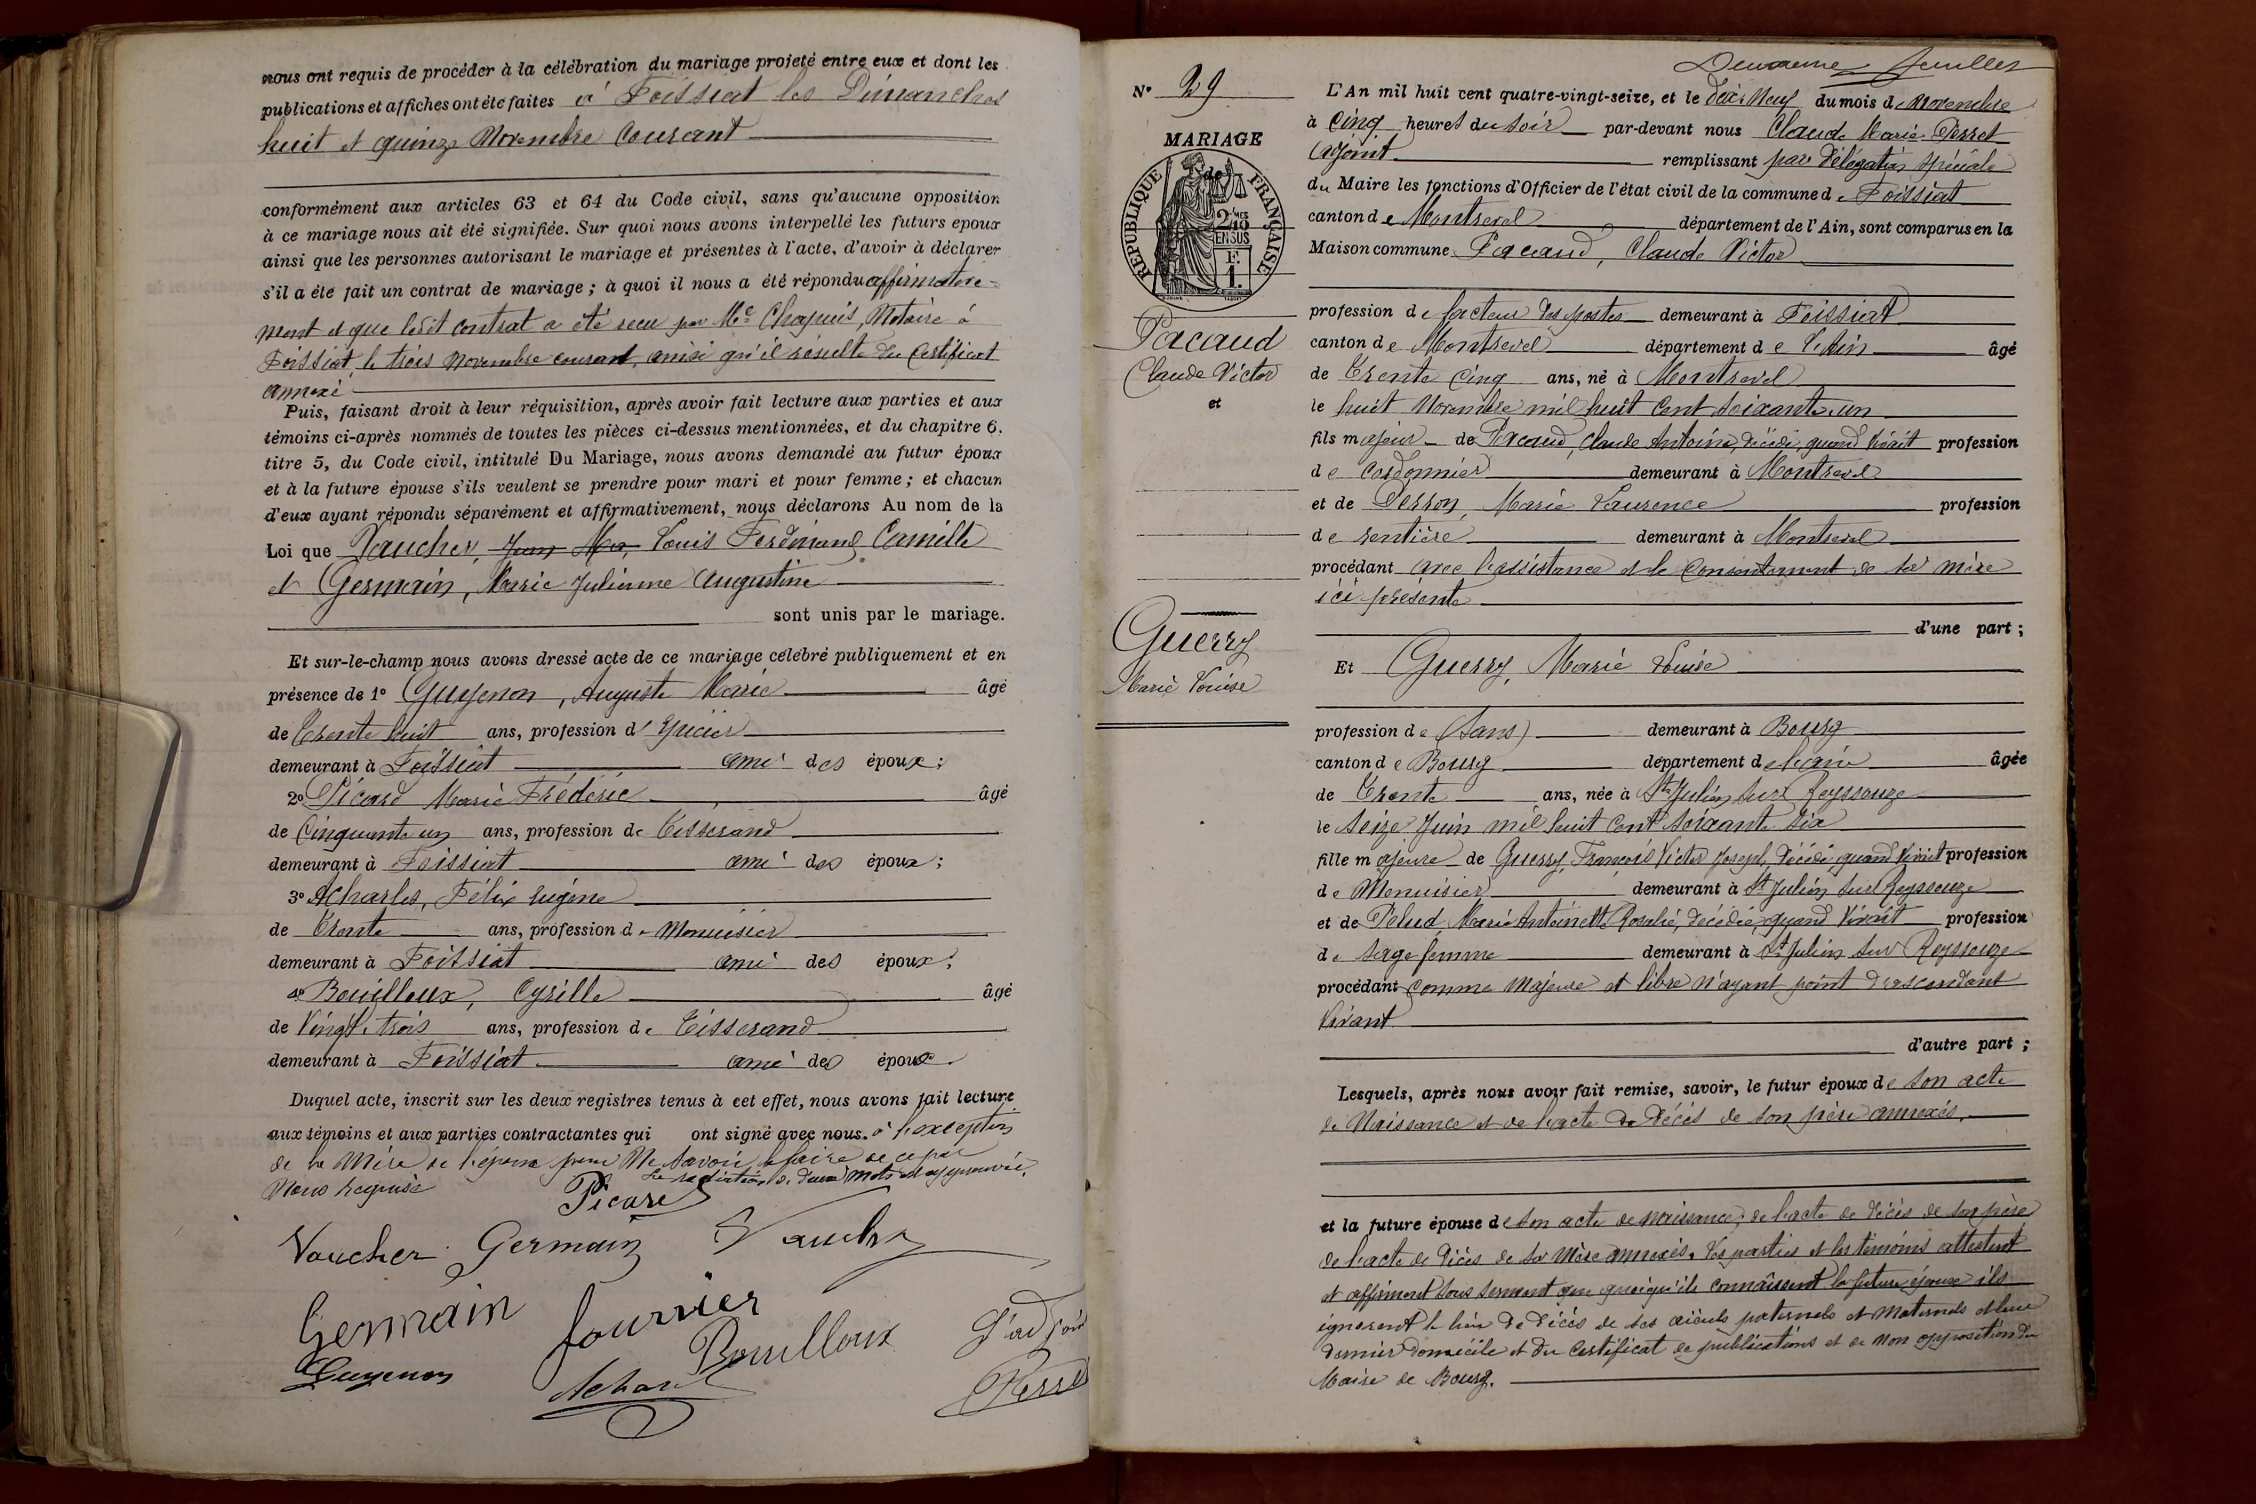 nous ont requis de procéder à la célébration du mariage projeté entre eux et dont les
publications et affiches ont été faites à Foissiat les Dimanches
huit et quinze Novembre Courant
conformément aux articles 63 et 64 du Code civil, sans qu'aucune opposition
à ce mariage nous ait été signifiée. Sur quoi nous avons interpellé les futurs epoux
ainsi que les personnes autorisant le mariage et présentes à l'acte, d'avoir à déclarer
s'il a été fait un contrat de mariage ; à quoi il nous a été répondu affirmative-
ment et que ledit contrat a été recu par Me Chapuis, Notaire à
Foissiat, le trois Novembre courant, ainsi qu'il résulte du Certificat
annexé
Puis, faisant droit à leur réquisition, après avoir fait lecture aux parties et aux
témoins ci-après nommés de toutes les pièces ci-dessus mentionnées, et du chapitre 6.
titre 5, du Code civil, intitulé Du Mariage, nous avons demandé au futur époux
et à la future épouse s'ils veulent se prendre pour mari et pour femme ; et chacun
d'eux ayant répondu séparément et affirmativement, nous déclarons Au nom de la
Loi que Vaucher, Louis Ferdinand Camille
et Germain, Marie Julienne Augustine
sont unis par le mariage.
Et sur-le-champ nous avons dressé acte de ce mariage célébré publiquement et en
présence de 1º Guyenon, Auguste Marie âgé
de Trente huit ans, profession d' Epicier
demeurant à Foissiat ami des époux ;
2º Picard Marie Frédéric âgé
de Cinquante un ans, profession de Tisserand
demeurant à Foissiat ami des époux ;
3º Acharles, Félix Eugène
de Trente ans, profession de Menuisier
demeurant à Foissiat ami des époux ;
4º Bouilloux, Cyrille âgé
de Vingt trois ans, profession de Tisserand
demeurant à Foissiat ami des époux.
Duquel acte, inscrit sur les deux registres tenus à cet effet, nous avons fait lecture
aux témoins et aux parties contractantes qui ont signé avec nous. à l'exception
de la Mère de l'épouse pour Ne Savoir le faire de ce par
Nous requise
La radiation de deux mots est approuvée.
Picard
Vaucher Germain Vaucher
Germain fournier
Guyenon Bouilloux L'adjoint
Achar Perret
Deuxieme feuillet
Nº 29
MARIAGE
de
RÉPUBLIQUE FRANÇAISE
2 MES 10
EN SUS
F.
1.
Pacaud
Claude Victor
et
Guerry
Marie Louise
L'An mil huit cent quatre-vingt-seize, et le Dix Neuf du mois de Novembre
à Cinq heures du soir par-devant nous Claude Marie Perret
Adjoint remplissant par Délégation spéciale
du Maire les fonctions d'Officier de l'état civil de la commune de Foissiat
canton de Montrevel département de l'Ain, sont comparus en la
Maison commune Pacaud, Claude Victor
profession de facteur des postes demeurant à Foissiat
canton de Montrevel département de l'Ain âgé
de Trente Cinq ans, né à Montrevel
le huit Novembre mil huit Cent Soixante un
fils majeur de Pacaud, Claude Antoine, décédé, quand Vivait profession
de Cordonnier demeurant à Montrevel
et de Perron, Marie Laurence profession
de rentière demeurant à Montrevel
procédant avec l'assistance et le Consentement de sa mère
ici présente
d'une part ;
Et Guerry, Marie Louise
profession de (Sans) demeurant à Bourg
canton de Bourg département de l'ain âgée
de Trente ans, née à St Julien sur Reyssouze
le Seize Juin mil huit Cent Soixante Six
fille majeure de Guerry, François Victor Joseph, décédé, quand Vivait profession
de Menuisier demeurant à St Julien Sur Reyssouze
et de Pelud Marie Antoinette Rosalie, décédée, quand Vivait profession
de Sage femme demeurant à St Julien Sur Reyssouze
procédant Comme Majeure et libre n'ayant point d'ascendant
Vivant
d'autre part ;
Lesquels, après nous avoir fait remise, savoir, le futur époux de son acte
de Naissance et de l'acte de Décès de son père annexés.
et la future épouse de son acte de naissance, de l'acte de Décès de son père
de l'acte de Décès de sa Mère annexés. Les parties et les témoins attestent
et affirment sous serment que quoiqu'ils connaissent la future épouse ils
ignorent le lieu de Décès de ses aïeuls paternels et Maternels et leur
dernier domicile et du Certificat de publications et de Non opposition du
Maire de Bourg.